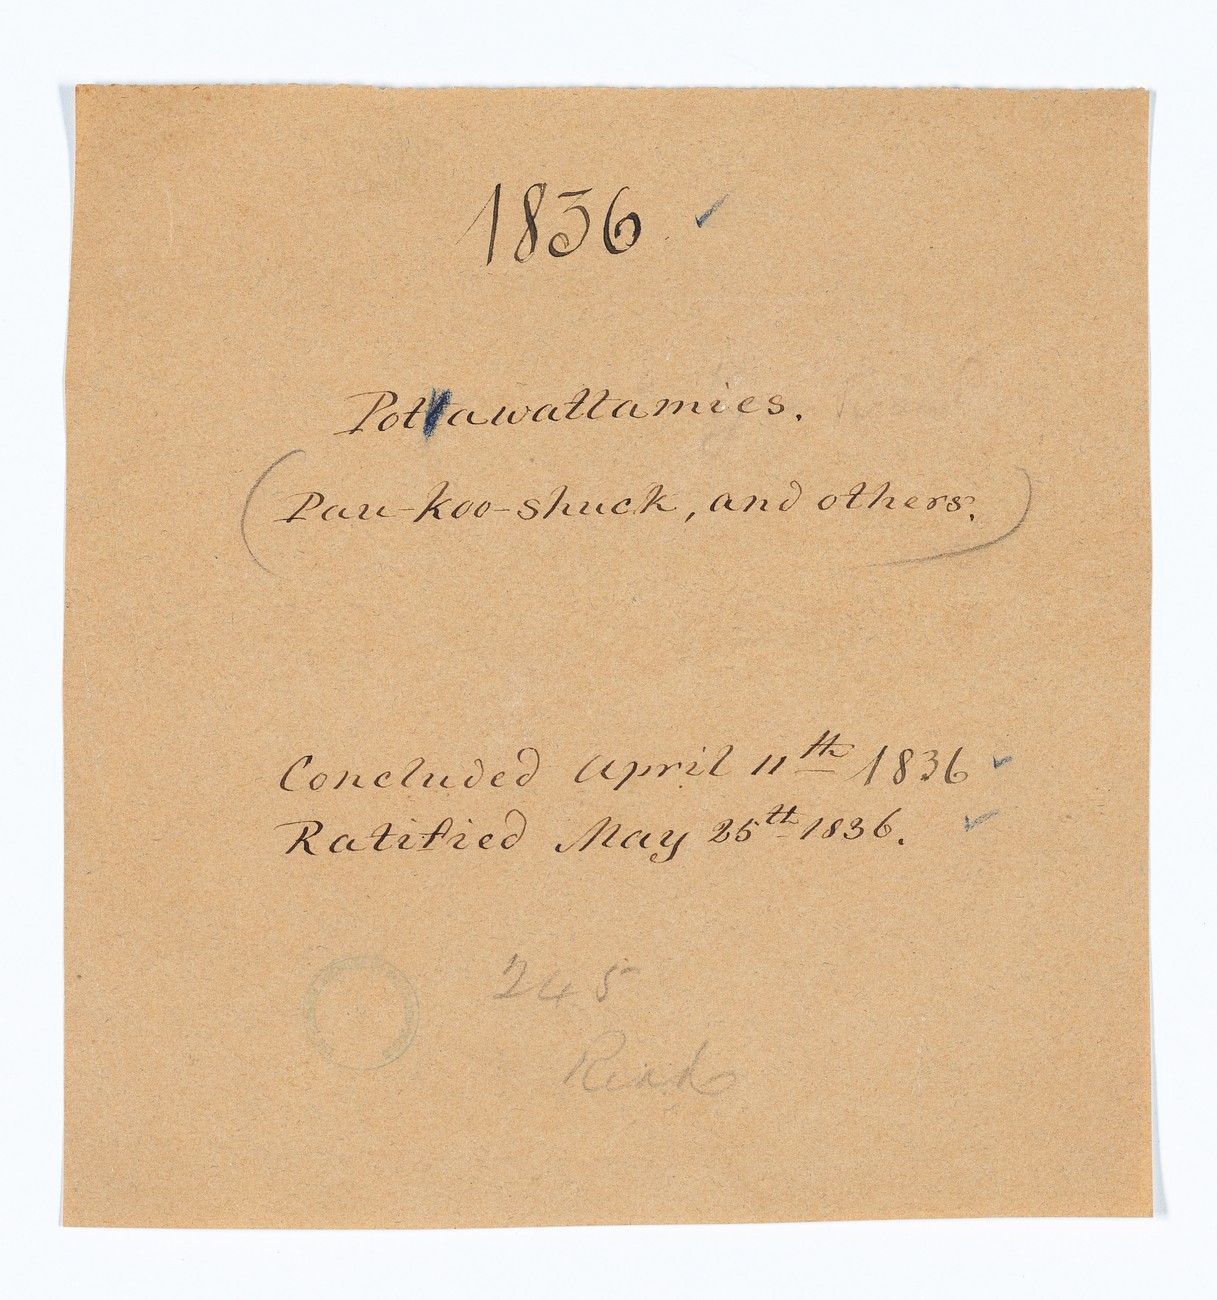 1836 ✓
Potawattamies.
(Pau-koo-shuck, and others.)
Concluded April 11th 1836 ✓
Ratified May 25th 1836. ✓
245
Read